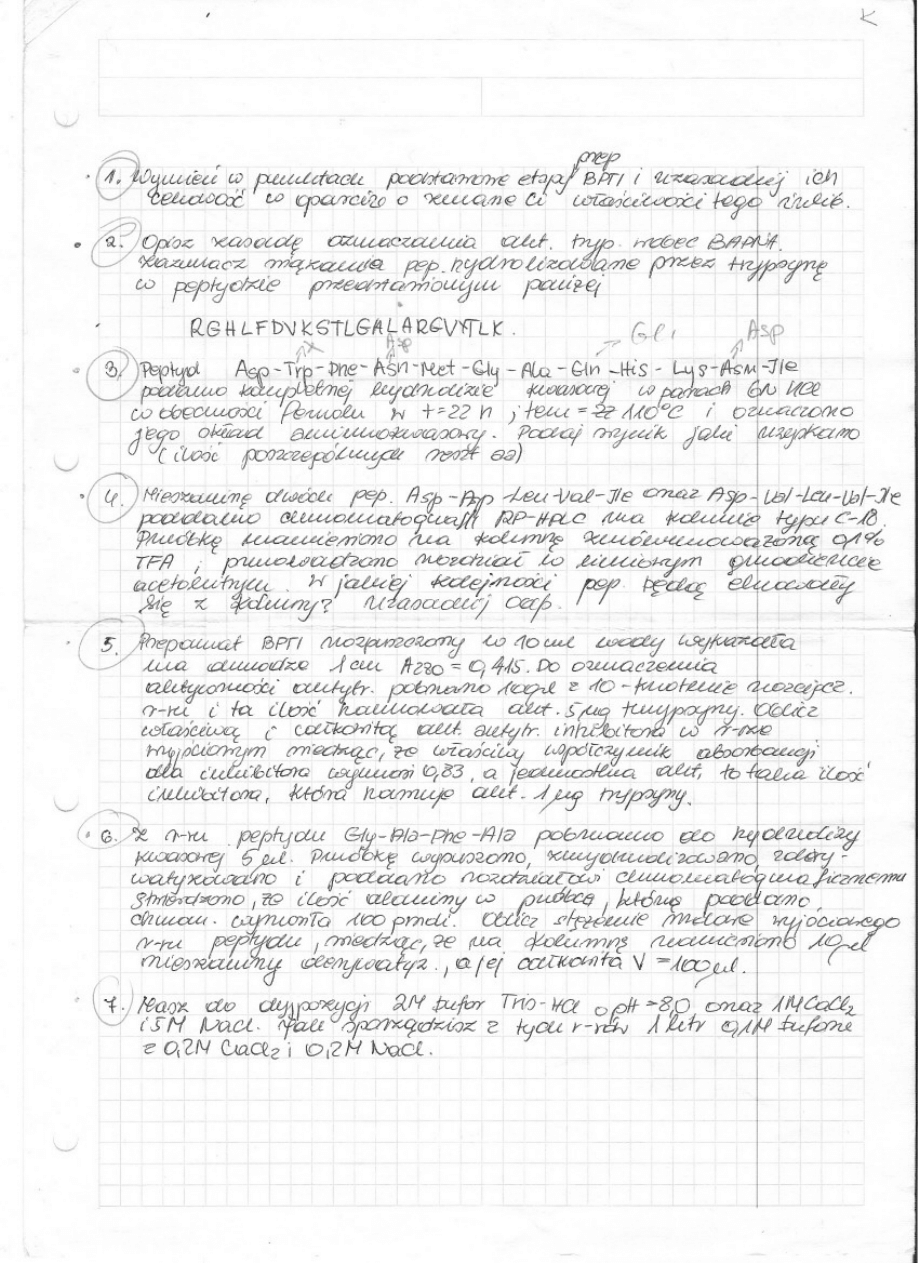 K
prep
1. Wymień w punktach podstawowe etapy BPTI i uzasadnij ich
celowość w oparciu o znane Ci właściwości tego inhib.
2. Opisz zasadę oznaczania akt. tryp. wobec BAPNA.
Zaznacz wiązania pep. hydrolizowane przez trypsynę
w peptydzie przedstawionym poniżej
RGHLFDVKSTLGALARGVYTLK.
Asp Glu Asp
3. Peptyd Asp-Trp-Phe-Asn-Met-Gly-Ala-Gln-His-Lys-Asn-Ile
poddano kompletnej hydrolizie kwasowej w parach 6N HCl
w obecności fenolu w t=22 h; tem = 110°C i oznaczono
jego skład aminokwasowy. Podaj wynik jaki uzyskano
(ilość poszczególnych reszt aa)
4. Mieszaninę dwóch pep. Asp-Asp-Leu-Val-Ile oraz Asp-Val-Leu-Val-Ile
poddano chromatografii RP-HPLC na kolumnie typu C-18.
Próbkę naniesiono na kolumnę zrównoważoną 0,1%
TFA i prowadzono rozdział w liniowym gradiencie
acetonitrylu. W jakiej kolejności pep. będą eluowały
się z kolumny? Uzasadnij odp.
5. Preparat BPTI rozpuszczony w 10 ml wody wykazała
na drodze 1 cm A280 = 0,415. Do oznaczenia
aktywności antytr. pobrano 10 µl z 10-krotenie rozcieńcz.
r-ru i ta ilość hamowała akt. 5 µg trypsyny. Oblicz
właściwą i całkowitą akt. antytr. inhibitora w r-rze
wyjściowym wiedząc, że właściwy współczynnik absorbancji
dla inhibitora wynosi 0,83, a jednostka akt. to taka ilość
inhibitora, która hamuje akt. 1 µg trypsyny.
6. Z r-ru peptydu Gly-Ala-Phe-Ala pobrano do hydrolizy
kwasowej 5 µl. Próbkę wysuszono, zhydrolizowano, zdery-
watyzowano i poddano rozdziałowi chromatograficznemu
Stwierdzono, że ilość alaniny w próbce, którą poddano
chrom. wynosiła 100 pmoli. Oblicz stężenie molowe wyjściowego
r-ru peptydu, wiedząc, że na kolumnę naniesiono 10 µl
mieszaniny derywatyz., a jej całkowita V = 100 µl.
7. Masz do dyspozycji 2M bufor Tris-HCl o pH = 8,0 oraz 1M CaCl2
i 5M NaCl. Jak sporządzisz z tych r-rów 1 litr 0,1M buforu
z 0,2M CaCl2 i 0,2M NaCl.